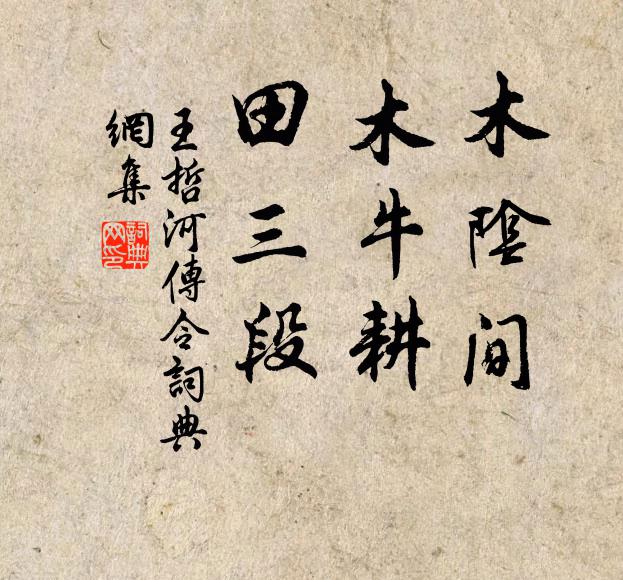 木陰間
木牛耕
田三段
王哲河傳令詞典
網集
詞典
网印